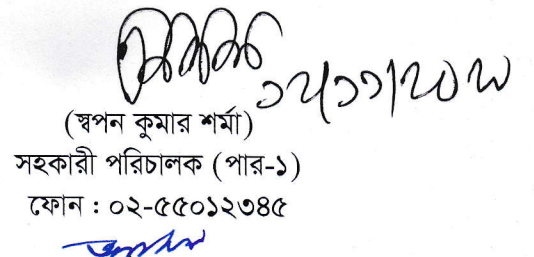 (স্বপন কুমার শর্মা)
সহকারী পরিচালক (পার-১)
ফোন : ০২-৫৫০১২৩৪৫